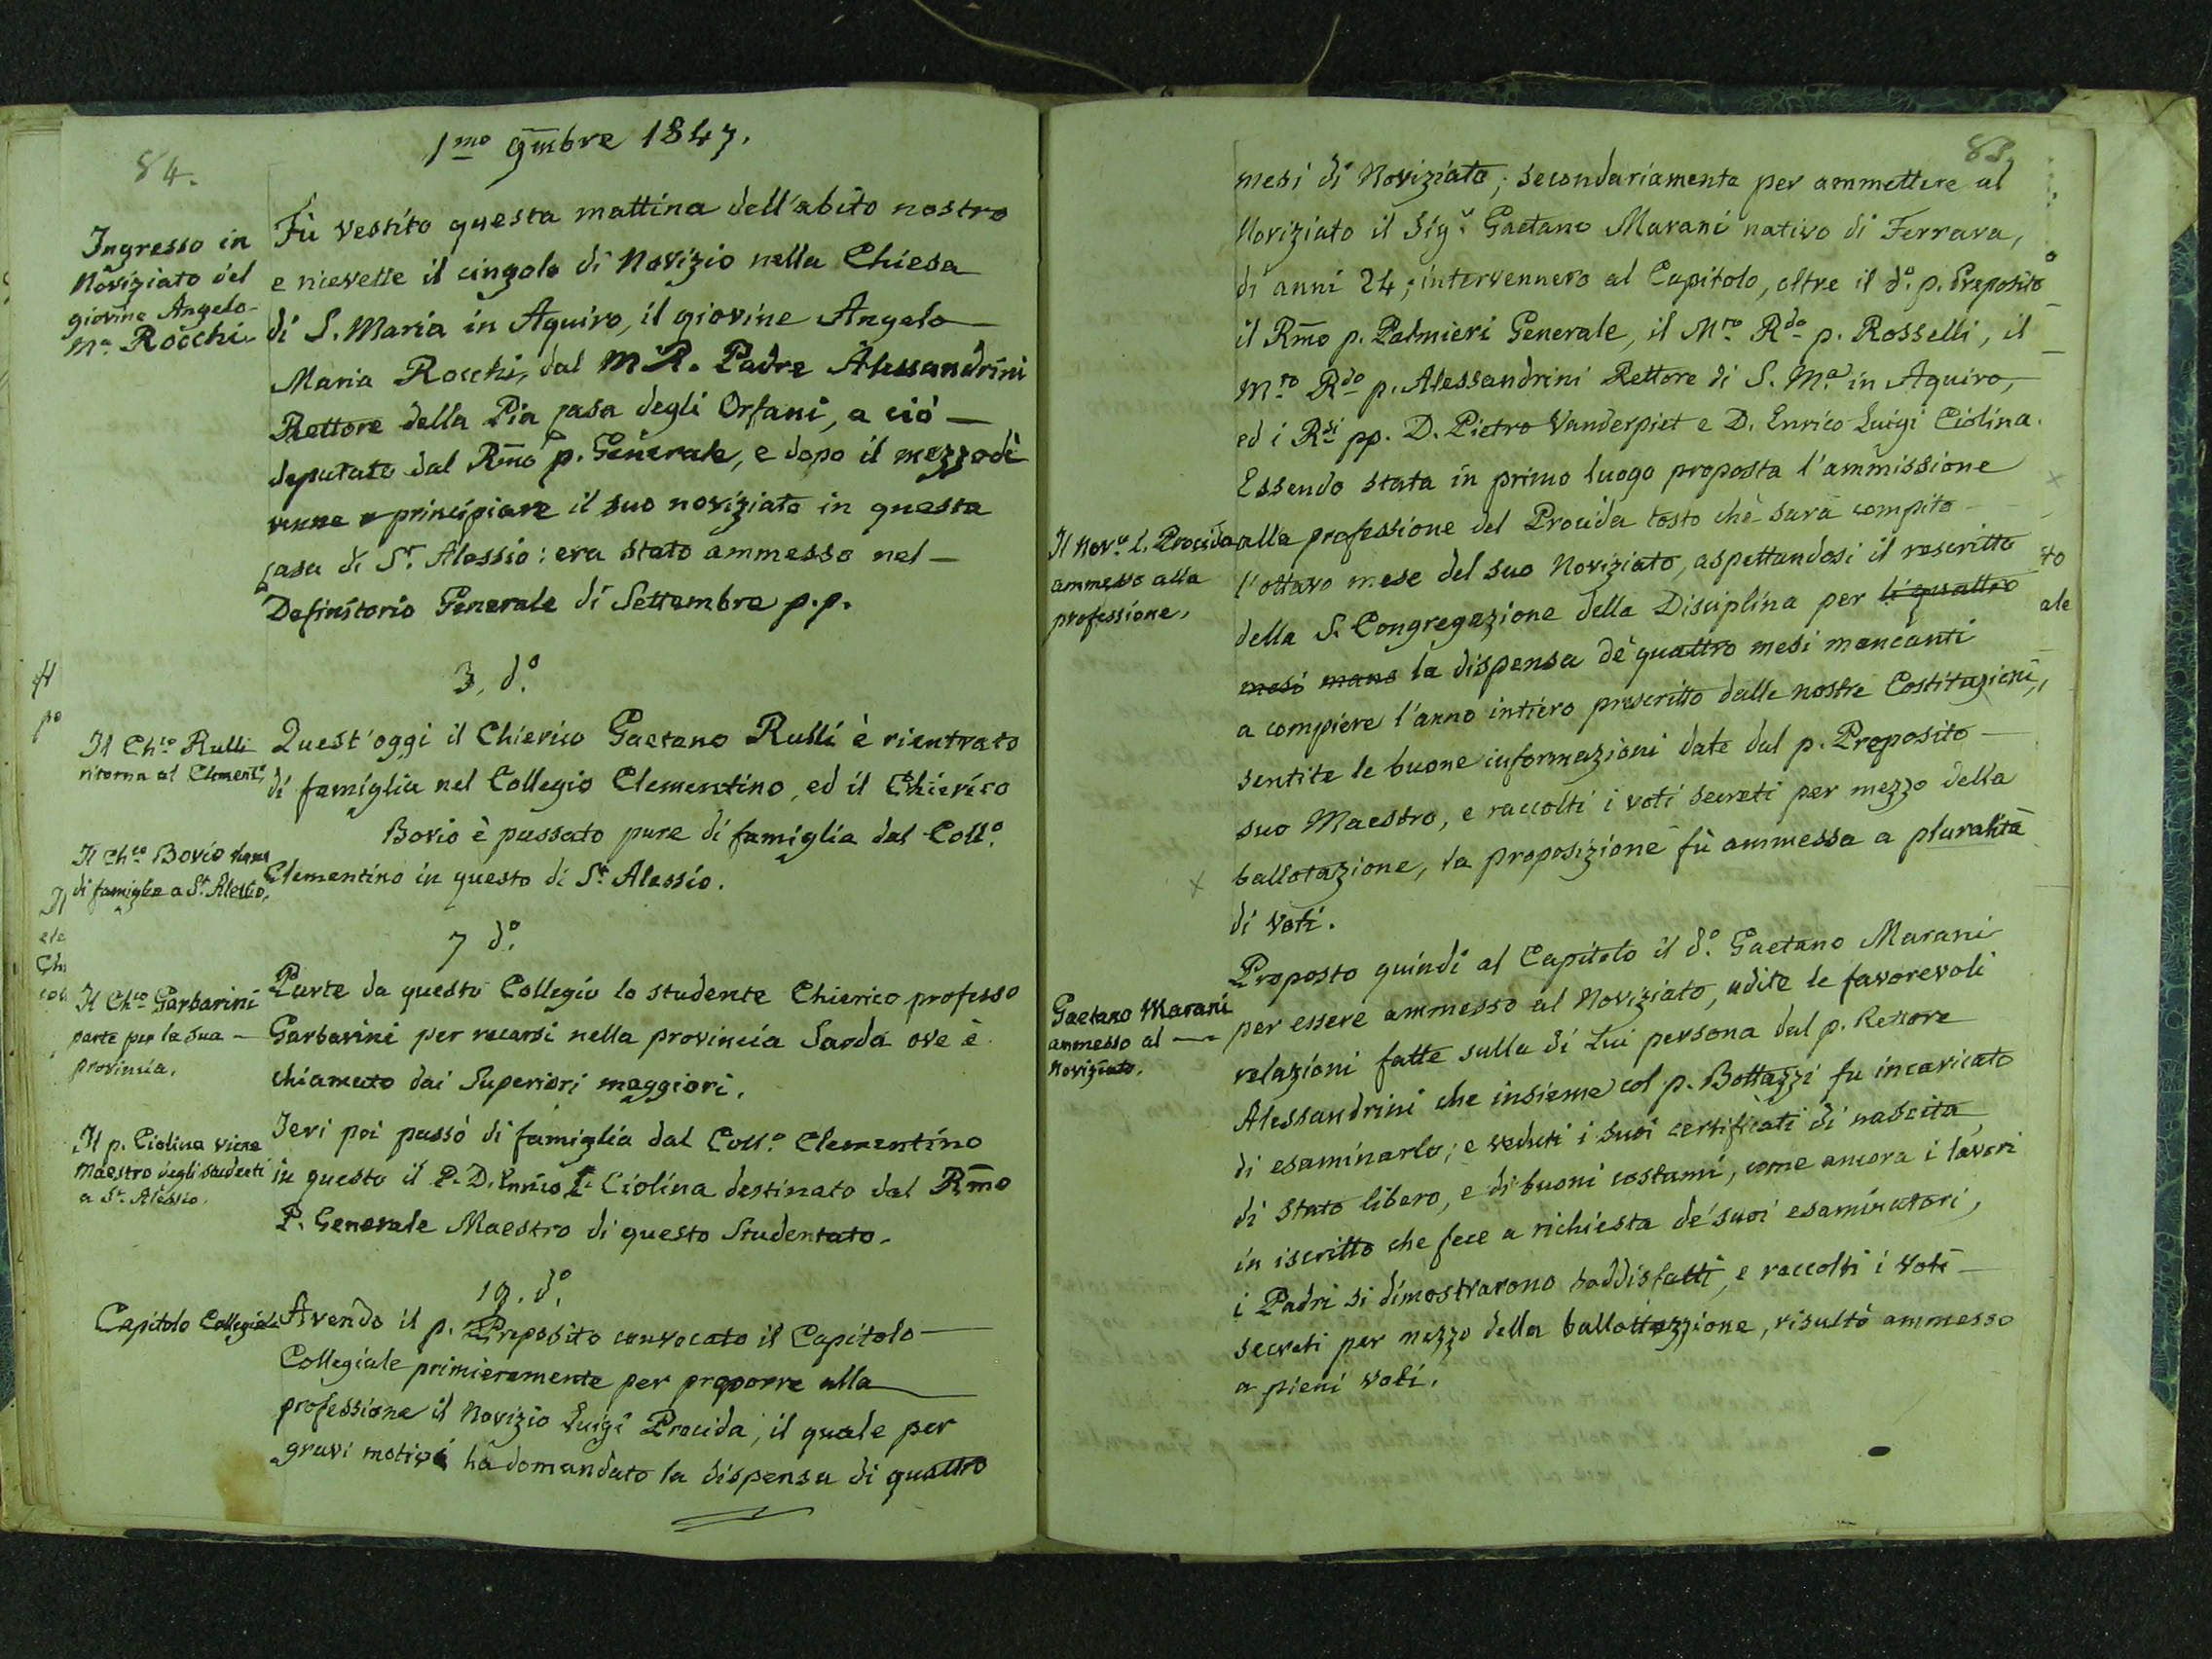 84.
1mo 9mbre 1847.
Ingresso in
Noviziato del
giovine Angelo
Ma Rocchi.
Fù vestito questa mattina dell'abito nostro
e ricevette il cingolo di Novizio nella Chiesa
di S. Maria in Aquiro, il giovine Angelo
Maria Rocchi, dal M R. Padre Alessandrini
Rettore della Pia casa degli Orfani, a ciò
deputato dal Rmo p. Generale, e dopo il mezzodì
venne a principiare il suo noviziato in questa
casa di St. Alessio: era stato ammesso nel
Definitorio Generale di Settembre p.p.
3, do.
Il Chco Rulli
ritorna al Clement.
Quest'oggi il Chierico Gaetano Rulli è rientrato
di famiglia nel Collegio Clementino, ed il Chierico
Il Chco Bovio viene
di famiglia a St. Alessio.
Bovio è passato pure di famiglia dal Collo.
Clementino in questo di St. Alessio.
7 do.
Il Chco Garbarini
parte per la sua
provincia.
Parte da questo Collegio lo studente Chierico professo
Garbarini per recarsi nella provincia Sarda ove è
chiamato dai Superiori maggiori.
Il p. Ciolina viene
Maestro degli studenti
a St. Alessio.
Ieri poi passò di famiglia dal Collo. Clementino
in questo il P. D. Enrico L. Ciolina destinato dal Rmo
P. Generale Maestro di questo Studentato.
19. do.
Capitolo Collegiale
Avendo il p. Preposito convocato il Capitolo
Collegiale primieramente per proporre alla
professione il Novizio Luigi Procida, il quale per
gravi motivi ha domandato la dispensa di quattro
mesi di Noviziato; secondariamente per ammettere al
Noviziato il Sigr. Gaetano Marani nativo di Ferrara,
di anni 24; intervennero al Capitolo, oltre il do. p. Preposito
il Rmo p. Palmieri Generale, il Mto Rdo p. Rosselli, il
Mto Rdo p. Alessandrini Rettore di S. Ma in Aquiro,
ed i Rdi pp. D. Pietro Vanderpiet e D. Enrico Luigi Ciolina.
Essendo stata in primo luogo proposta l'ammissione
Il Novo L. Procida
ammesso alla
professione.
alla professione del Procida tosto chè sarà compito
l'ottavo mese del suo Noviziato, aspettandosi il rescritto
della S. Congregazione della Disciplina per li quattro
mesi manc la dispensa de' quattro mesi mancanti
a compiere l'anno intiero prescritto dalle nostre Costituzioni,
sentite le buone informazioni date dal p. Preposito
suo Maestro, e raccolti i voti secreti per mezzo della
ballotazione, la proposizione fù ammessa a pluralità
di voti.
Gaetano Marani
ammesso al
Noviziato.
Proposto quindi al Capitolo il do. Gaetano Marani
per essere ammesso al Noviziato, udite le favorevoli
relazioni fatte sulla di Lui persona dal p. Rettore
Alessandrini che insieme col p. Bottazzi fu incaricato
di esaminarlo; e veduti i suoi certificati di nascita,
di stato libero, e di buoni costumi, come ancora i lavori
in iscritto che fece a richiesta de' suoi esaminatori,
i Padri si dimostrarono soddisfatti, e raccolti i voti
secreti per mezzo della ballottazzione, risultò ammesso
a pieni voti.